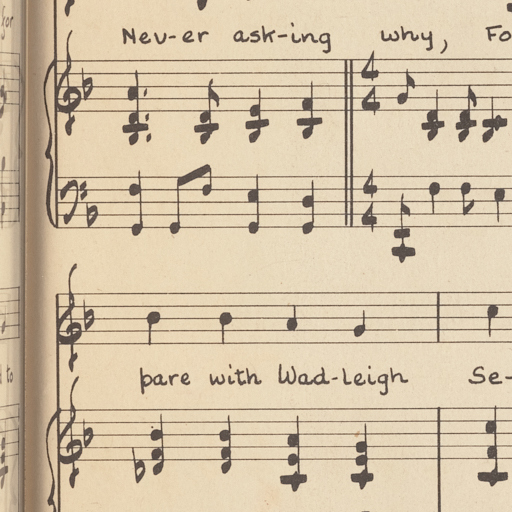 Nev-er ask-ing why, Fo
4 4
4 4
pare with Wad-leigh Se-
for
to